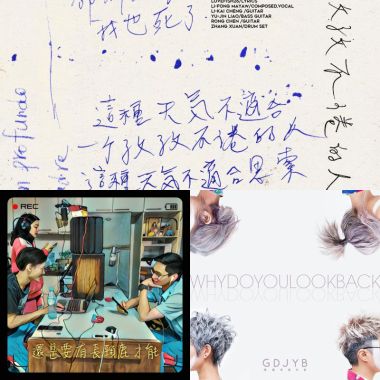 我也死了
LOVEFISH8S/LYRICS
LI-FONG MAYAW/COMPOSED,VOCAL
LI-KAI CHENG /GUITAR
YU-JIN LIAO/BASS GUITAR
RONG CHEN /GUITAR
ZHANG XUAN/DRUM SET
profundo
這種天氣不適合
一個孜孜不倦的人
這種天氣不適合思索
孜孜不倦的人
REC
還是要有長頸鹿才能
WHYDOYOULOOKBACK
GDJYB